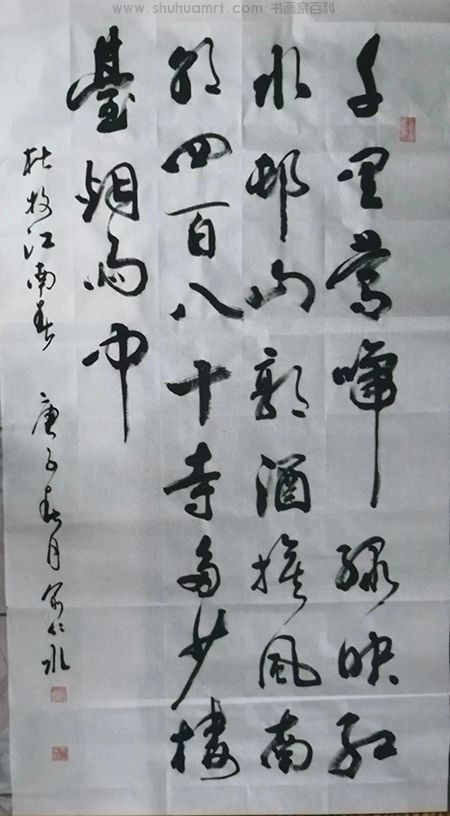 www.shuhuamrt.com 书画家百科
千里莺啼绿映红
水邨山郭酒旗风南
朝四百八十寺多少楼
臺烟雨中
杜牧江南春 庚子春月 仁水